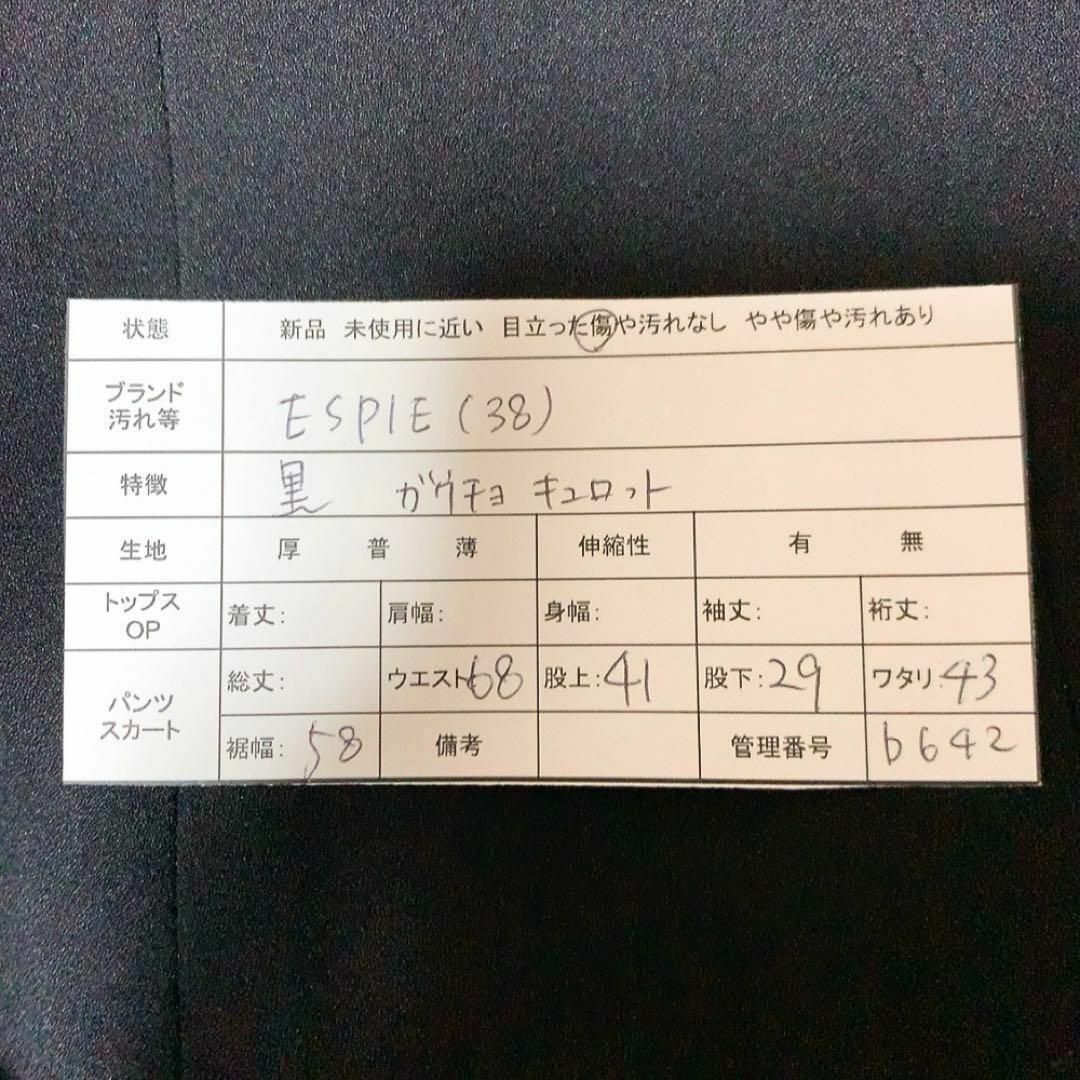 状態 新品 未使用に近い 目立った傷や汚れなし やや傷や汚れあり
ブランド
汚れ等
ESPIE (38)
特徴 黒 ガウチョ キュロット
生地 厚 普 薄 伸縮性 有 無
トップス
OP
着丈: 肩幅: 身幅: 袖丈: 裄丈:
パンツ
スカート
総丈: ウエスト68 股上:41 股下:29 ワタリ:43
裾幅: 58 備考 管理番号 b642